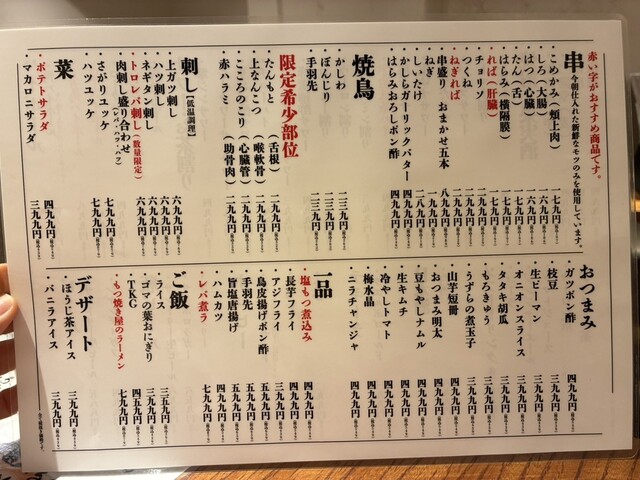 赤い字がおすすめ商品です。
串 今朝仕入れた新鮮なモツのみを使用しています。
・こめかみ(頬上肉) 一七九円
・しろ(大腸) 一六九円
・はつ(心臓) 一六九円
・たん(舌) 一七九円
・はらみ(横隔膜) 一七九円
・れば(肝臓)
・チョリソ
・つくね
・ねぎれば
・串盛り おまかせ五本 八九九円
・ねぎ
・しいたけ
・かしらガーリックバター
・はらみおろしポン酢
焼鳥
・かしわ 一三九円
・ぼんじり 一三九円
・手羽先 二三九円
限定希少部位
・たんもと(舌根) 一九九円
・上なんこつ(喉軟骨) 二九九円
・こころのこり(心臓管) 二九九円
・赤ハラミ(助骨肉) 二九九円
刺し【低温調理】
・上ガツ刺し 六九九円
・ハツ刺し 六九九円
・ネギタン刺し 六九九円
・トロレバ刺し(数量限定) 六九九円
・肉刺し盛り合わせ(レバ・ハツ・ハツ)
・さがりユッケ 七九九円
・ハツユッケ 七九九円
菜
・ポテトサラダ 四九九円
・マカロニサラダ 三九九円
おつまみ
・ガツポン酢 四九九円
・枝豆 三九九円
・生ピーマン 三九九円
・オニオンスライス 三九九円
・タタキ胡瓜 三九九円
・もろきゅう 三九九円
・うずらの煮玉子 三九九円
・山芋短冊 四九九円
・おつまみ明太 四九九円
・豆もやしナムル 四九九円
・生キムチ 四九九円
・冷やしトマト 四九九円
・梅水晶 四九九円
・ニラチャンジャ 四九九円
一品
・塩もつ煮込み 四九九円
・長芋フライ 四九九円
・アジフライ
・鳥皮揚げポン酢
・手羽先
・旨塩唐揚げ
・ハムカツ
・レバ煮ラ 七九九円
ご飯
・ライス
・ゴマの葉おにぎり
・TKG
・もつ焼き屋のラーメン
デザート
・ほうじ茶アイス 三九九円
・バニラアイス 三九九円